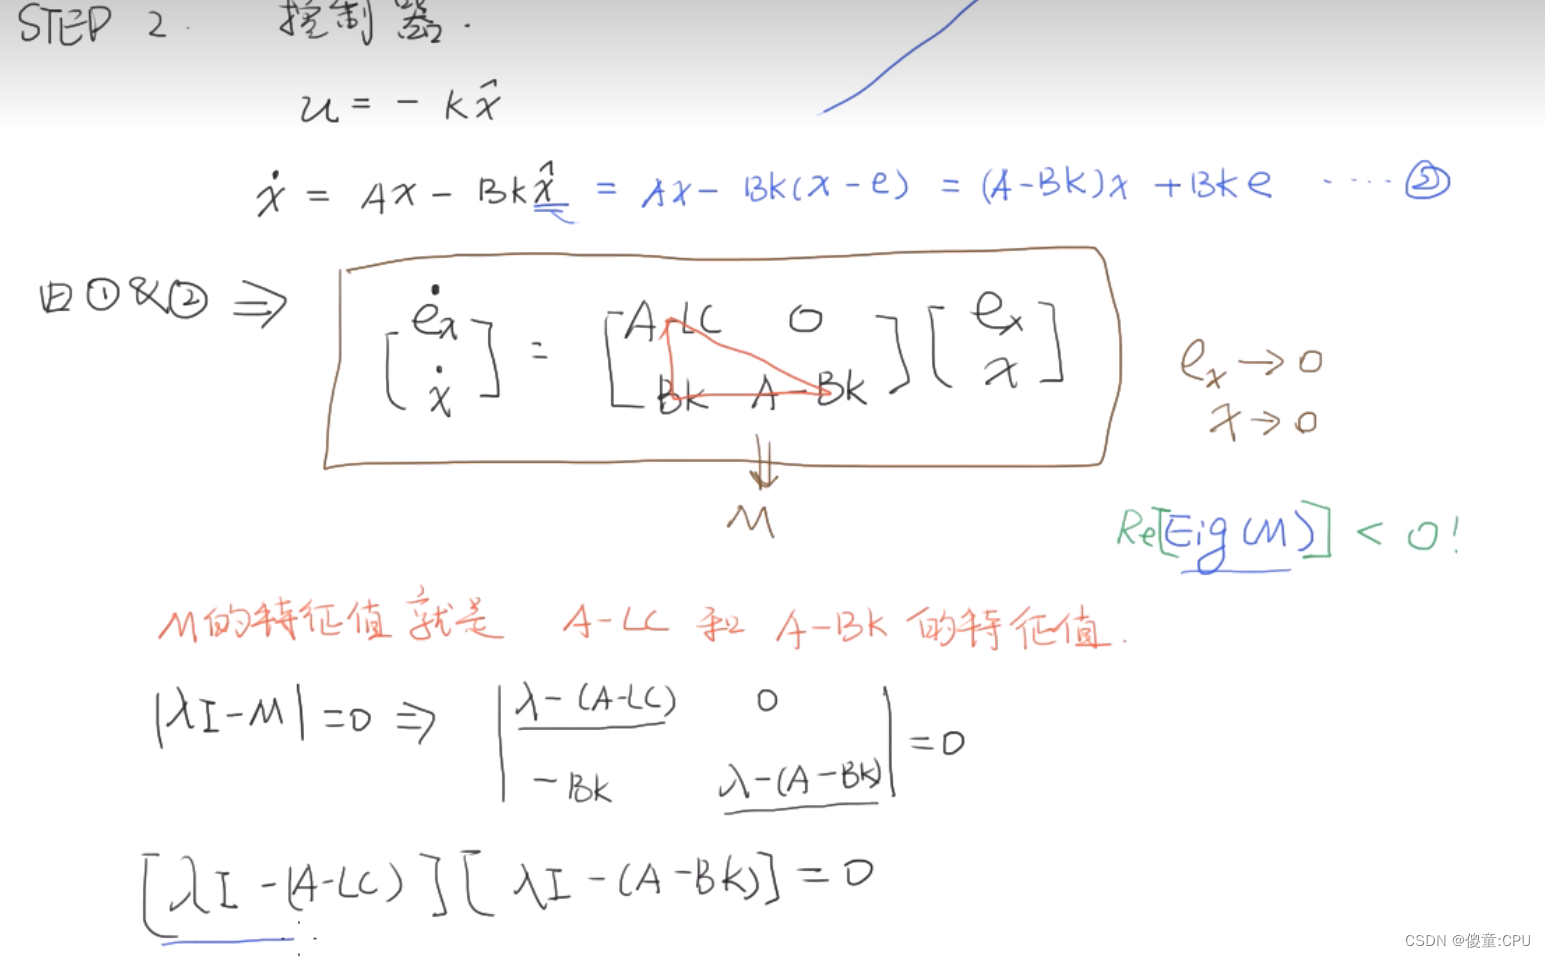 STEP 2. 控制器.
u = - kx̂
ẋ = Ax - Bkx̂ = Ax - Bk(x - e) = (A-Bk)x + Bke ····②
由①&②⇒ [ėx ẋ] = [A-LC 0 Bk A-Bk] [ex x]
ex → 0
x → 0
M
Re[Eig(M)] < 0!
M的特征值就是 A-LC 和 A-BK 的特征值.
|λI-M|=0 ⇒ |λ-(A-LC) 0 -Bk λ-(A-Bk)| = 0
[λI-(A-LC)][λI-(A-Bk)]=0
CSDN @傻童:CPU